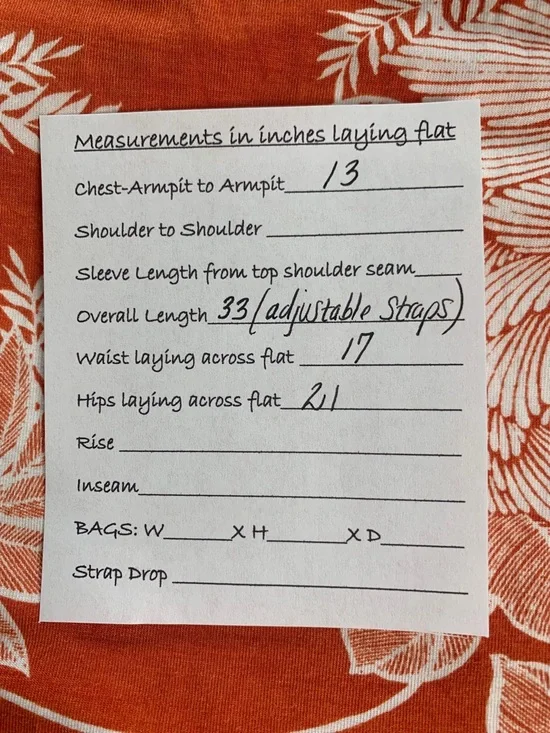 Measurements in inches laying flat
Chest-Armpit to Armpit 13
Shoulder to Shoulder
Sleeve Length from top shoulder seam
Overall Length 33 (adjustable Straps)
Waist laying across flat 17
Hips laying across flat 21
Rise
Inseam
BAGS: W______X H________X D________
Strap Drop